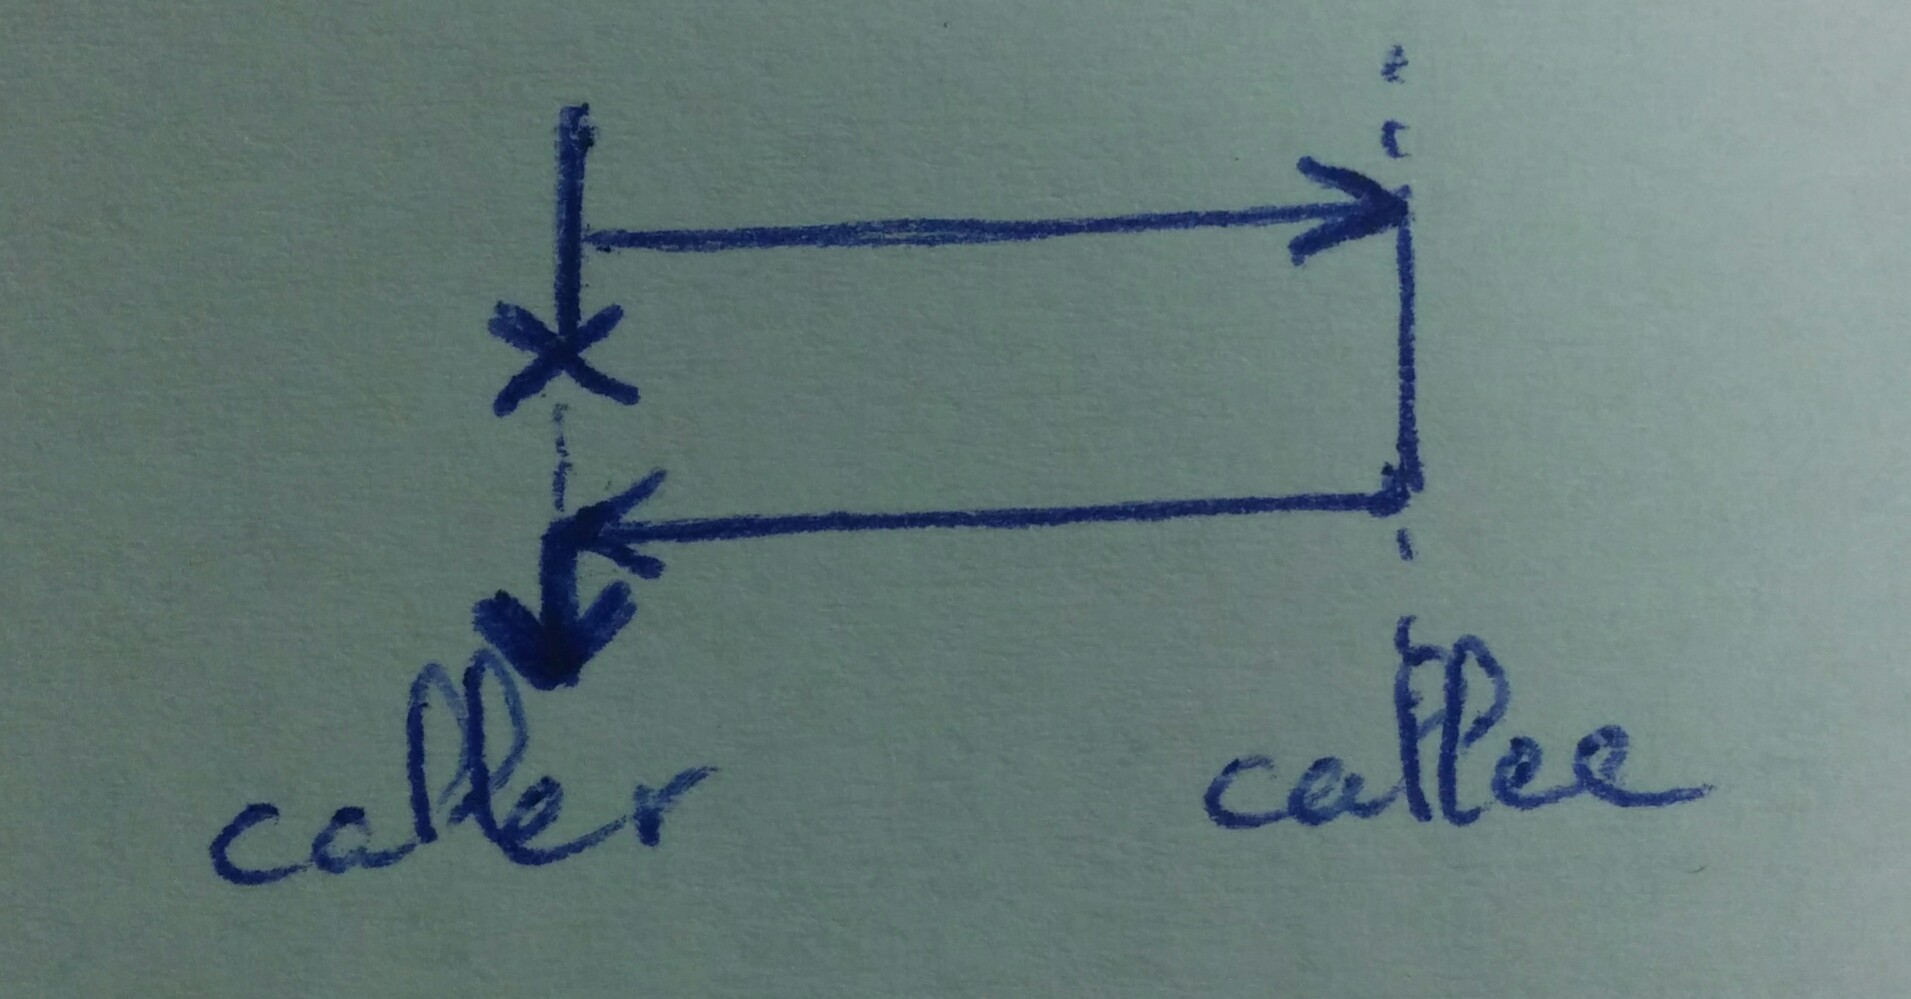 caller
callee